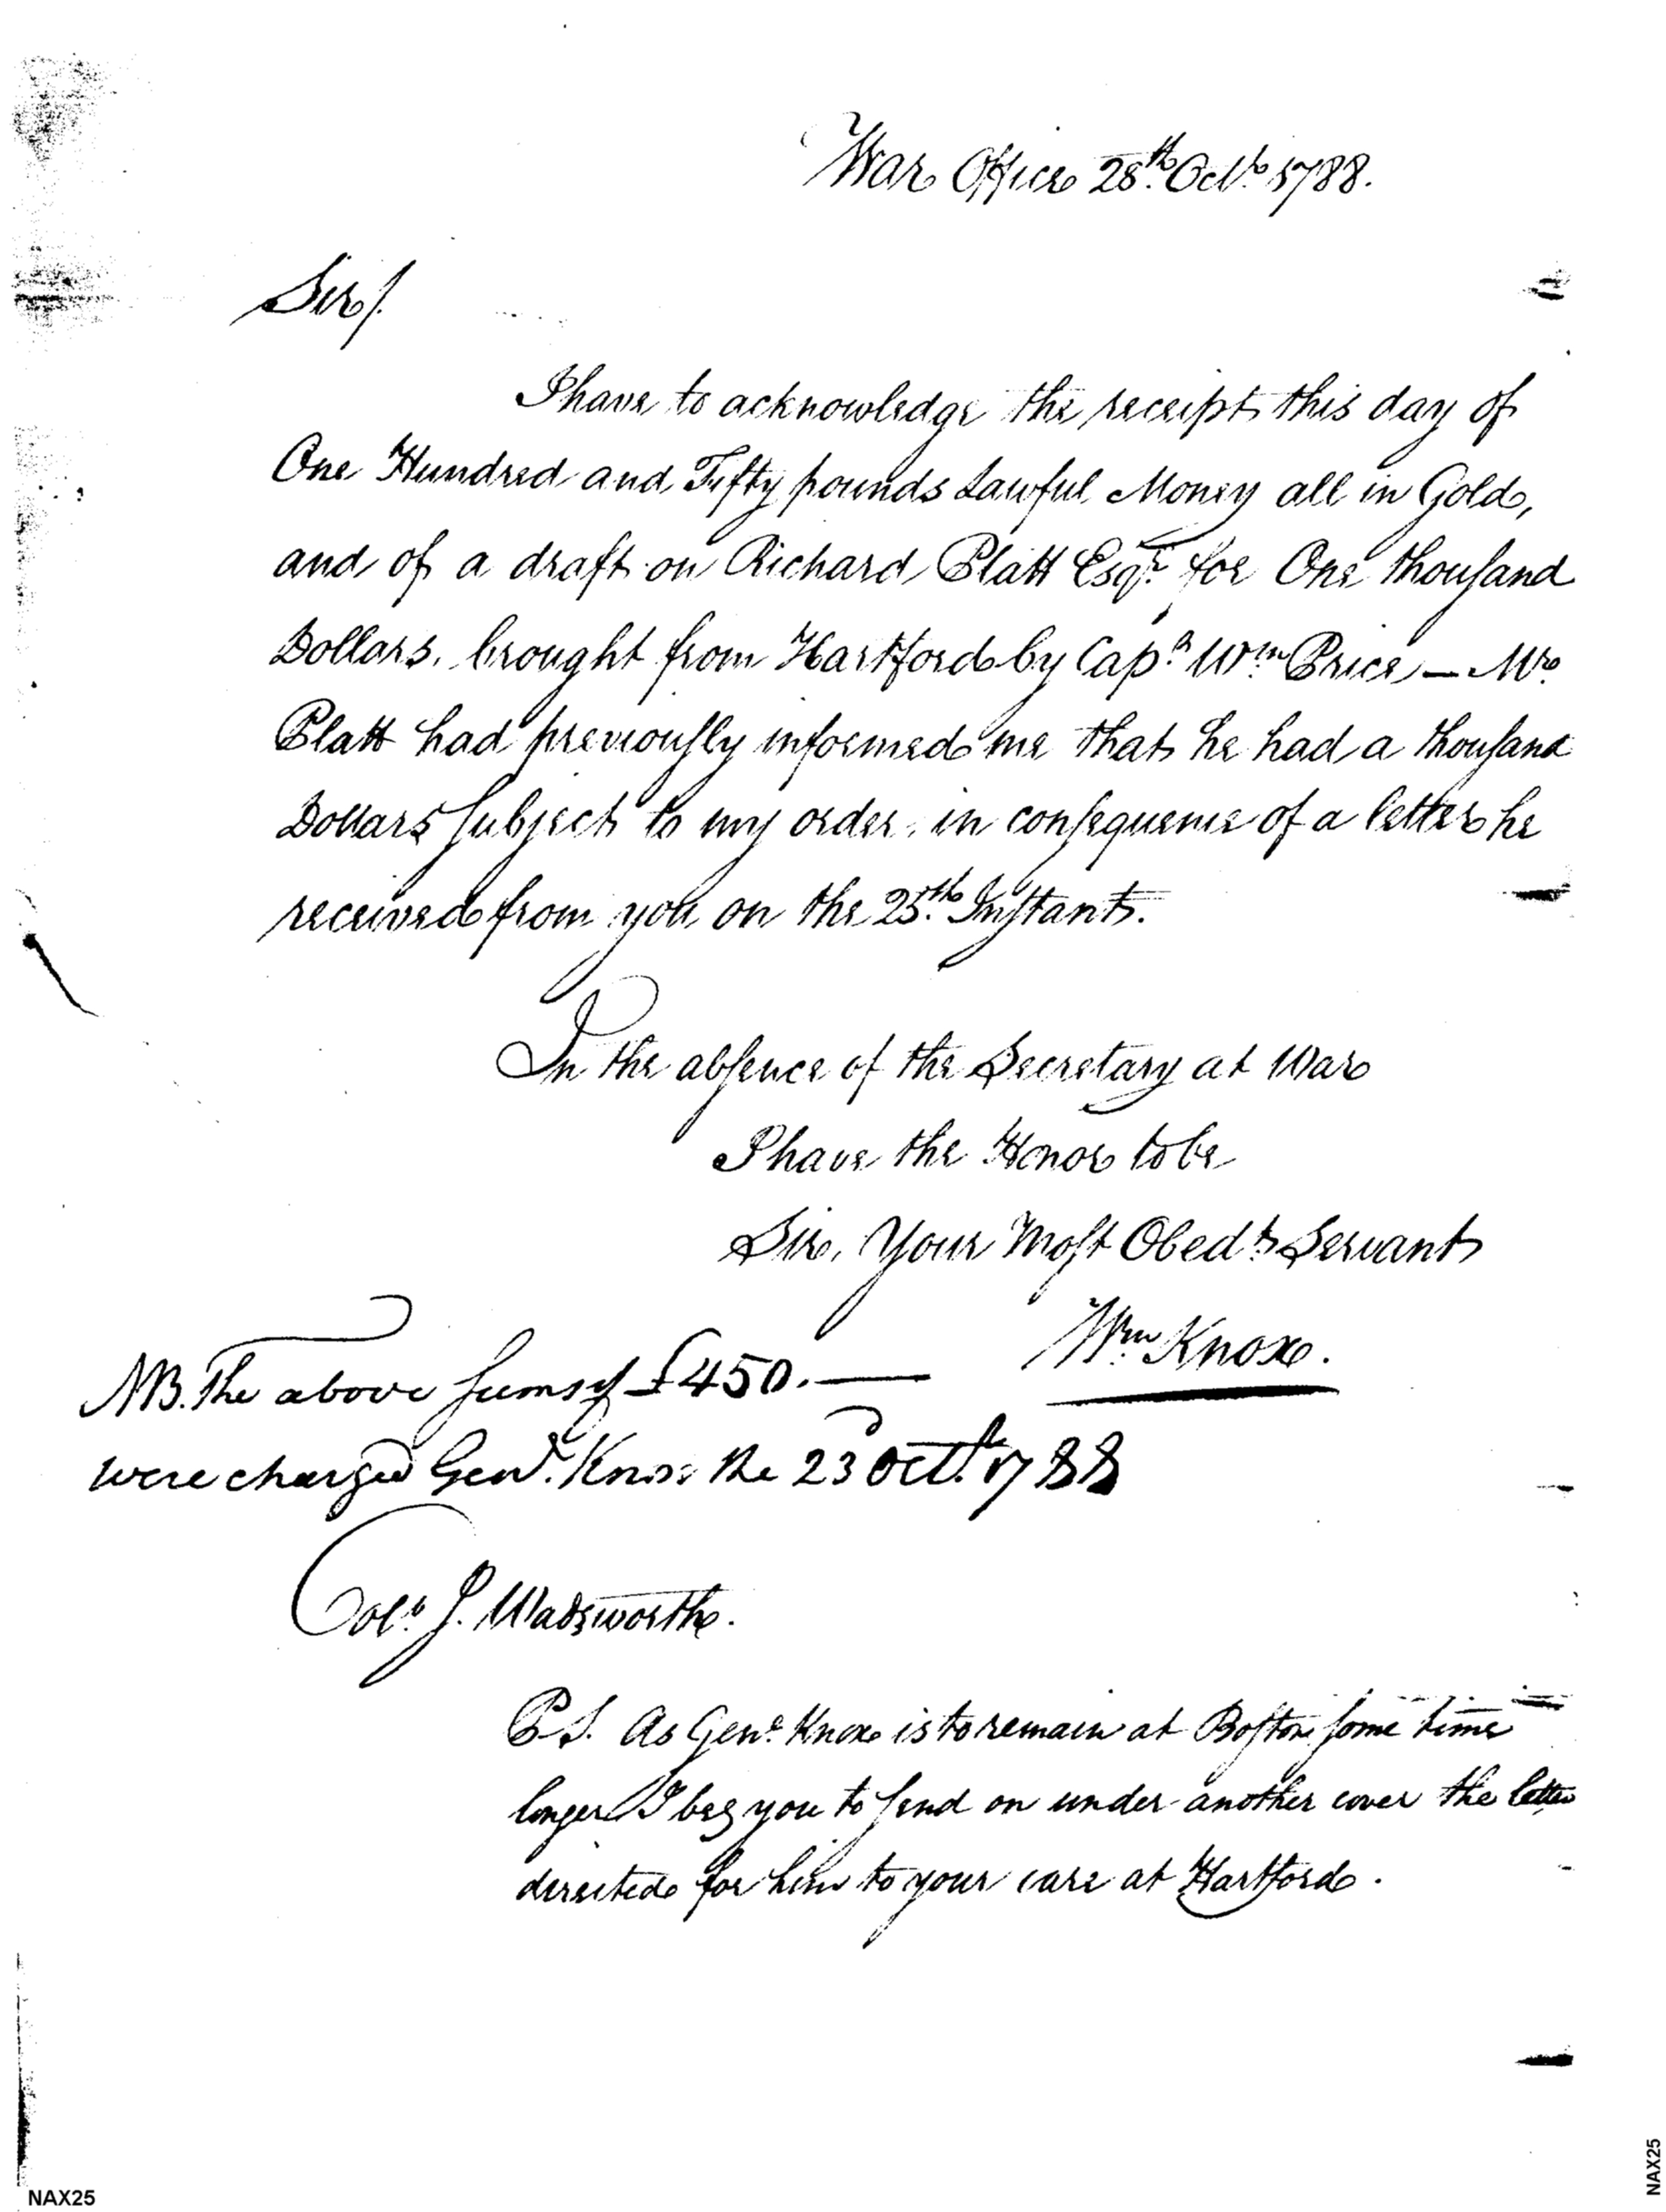 War Office 28th Octr 1788.
Sir/.
I have to acknowledge the receipt this day of
One Hundred and Fifty pounds Lawful Money all in Gold,
and of a draft on Richard Platt Esqr. for One thouſand
Dollars, brought from Hartford by Capt. Wm. Price — Mr.
Platt had previouſly informed me that he had a thouſand
Dollars ſubject to my order, in conſequence of a letter he
received from you on the 25th. Inſtant.
In the abſence of the Secretary at War
I have the Honor to be
Sir, Your Moſt Obedt. Servant
Wm. Knox.
NB. The above ſums of £450.—
were charged Genl. Knox the 23 Octr. 1788
Colo. J. Wadsworth.
P.S. As Genl. Knox is to remain at Boſton ſome time
longer I beg you to ſend on under another cover the letter
directed for him to your care at Hartford.
NAX25
NAX25